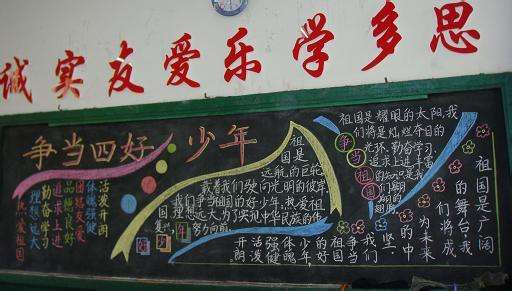 诚实友爱乐学多思
争当四好少年
活泼开朗
体魄强健
团结友爱
品德良好
追求上进
勤奋学习
理想远大
热爱祖国
祖国是
远航的巨轮
载着我们驶向光明的彼岸
我们争当祖国的好少年,热爱祖
国理想远大,为了实现中华民族的伟
复兴,
努力向前
祖国是耀眼的太阳,我
们将是灿烂夺目的
光环,勤奋学习,
追求上进丰富
争当祖国
祖国是广阔
的舞台,我
们将成
为未来
的中
坚,
我们
争当
祖国
的好
少年
体魄
强健
活泼
开朗